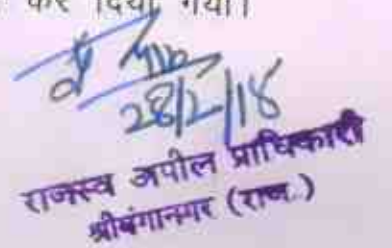 कर दिया गया।
28/2/18
राजस्व अपील प्राधिकारी
श्रीगंगानगर (राज.)